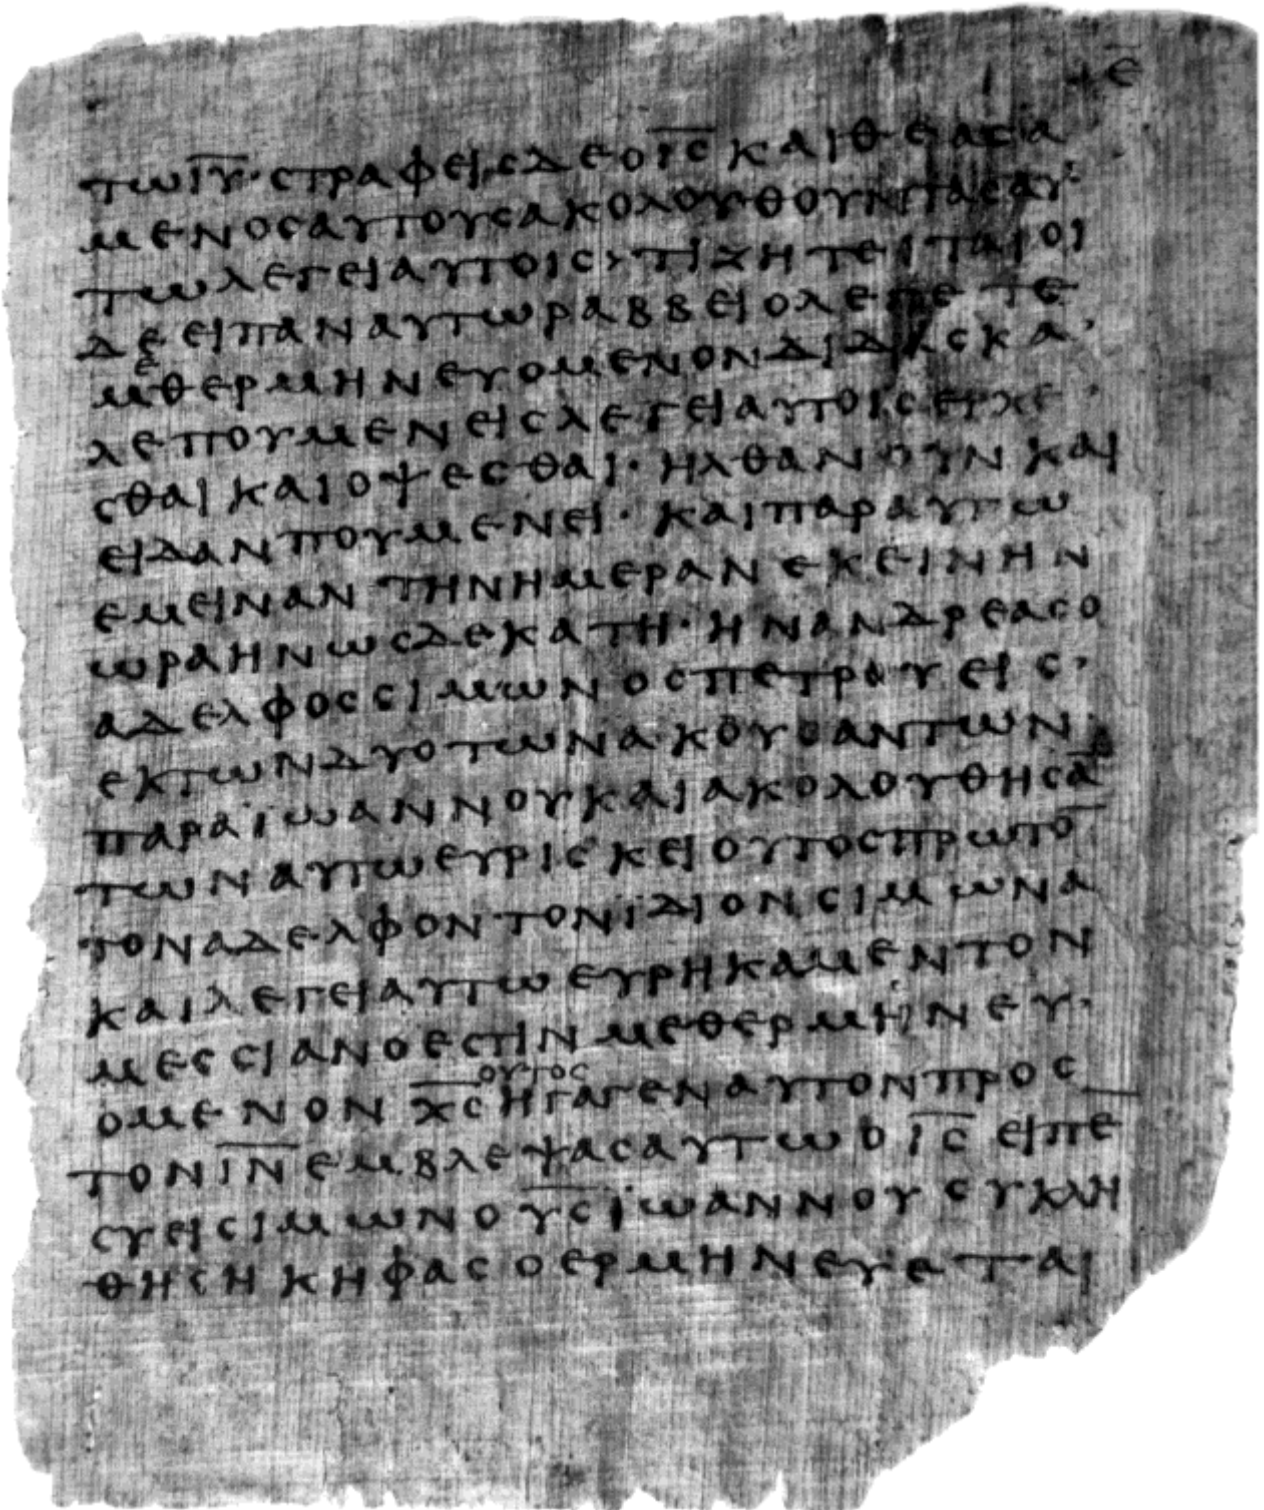 ε̅
τωι̅υ̅·στραφεισδεοι̅ς̅καιθεασα
μενοσαυτουσακολουθουντασαυ·
τωλεγειαυτοισ·τιζητειταιοι
δεειπαναυτωραββειολεγετε
μεθερμηνευομενονδιδασκα·
λεπουμενεισλεγειαυτοισερχε·
σθαικαιοψεσθαι·ηλθανουνκαι
ειδανπουμενει·καιπαραυτω
εμειναντηνημερανεκεινην
ωραηνωσδεκατη·ηνανδρεασο
αδελφοσσιμωνοσπετρουεισ·
εκτωνδυοτωνακουσαντων·
παραϊωαννουκαιακολουθησα̅
τωναυτωευρισκειουτοσπρωτο̅
τοναδελφοντονϊδιονσιμωνα
καιλεγειαυτωευρηκαμεντον
μεσσιανοεστινμεθερμηνευ·
ομενονχ̅ς̅ουτοσηγαγεναυτονπροσ
τονι̅ν̅εμβλεψασαυτωοι̅ς̅ειπε
συεισιμωνου̅ς̅ϊωαννουσυκλη
θησηκηφασοερμηνευεται